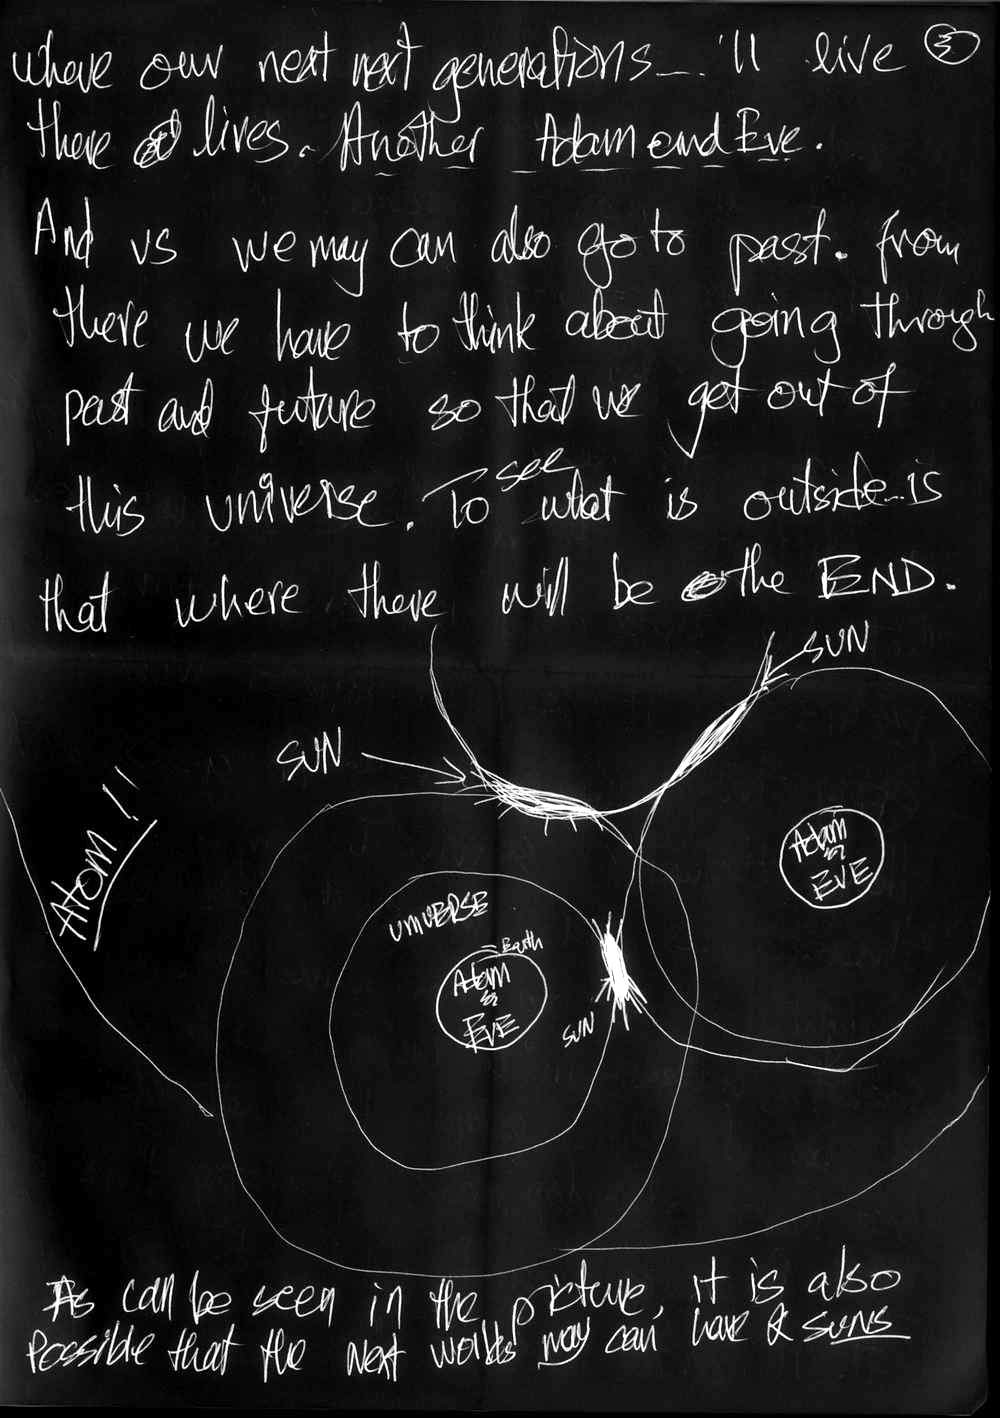 where our next next generations 'll live
there lives. Another Adam and Eve.
And us we may can also go to past. from
there we have to think about going through
past and future so that we get out of
this universe. To see what is outside is
that where there will be the END.
SUN
SUN
Atom!!
Adam
&
EVE
UNIVERSE
Earth
Adam
&
EVE
SUN
As can be seen in the picture, it is also
Possible that the next worlds may can have 2 suns